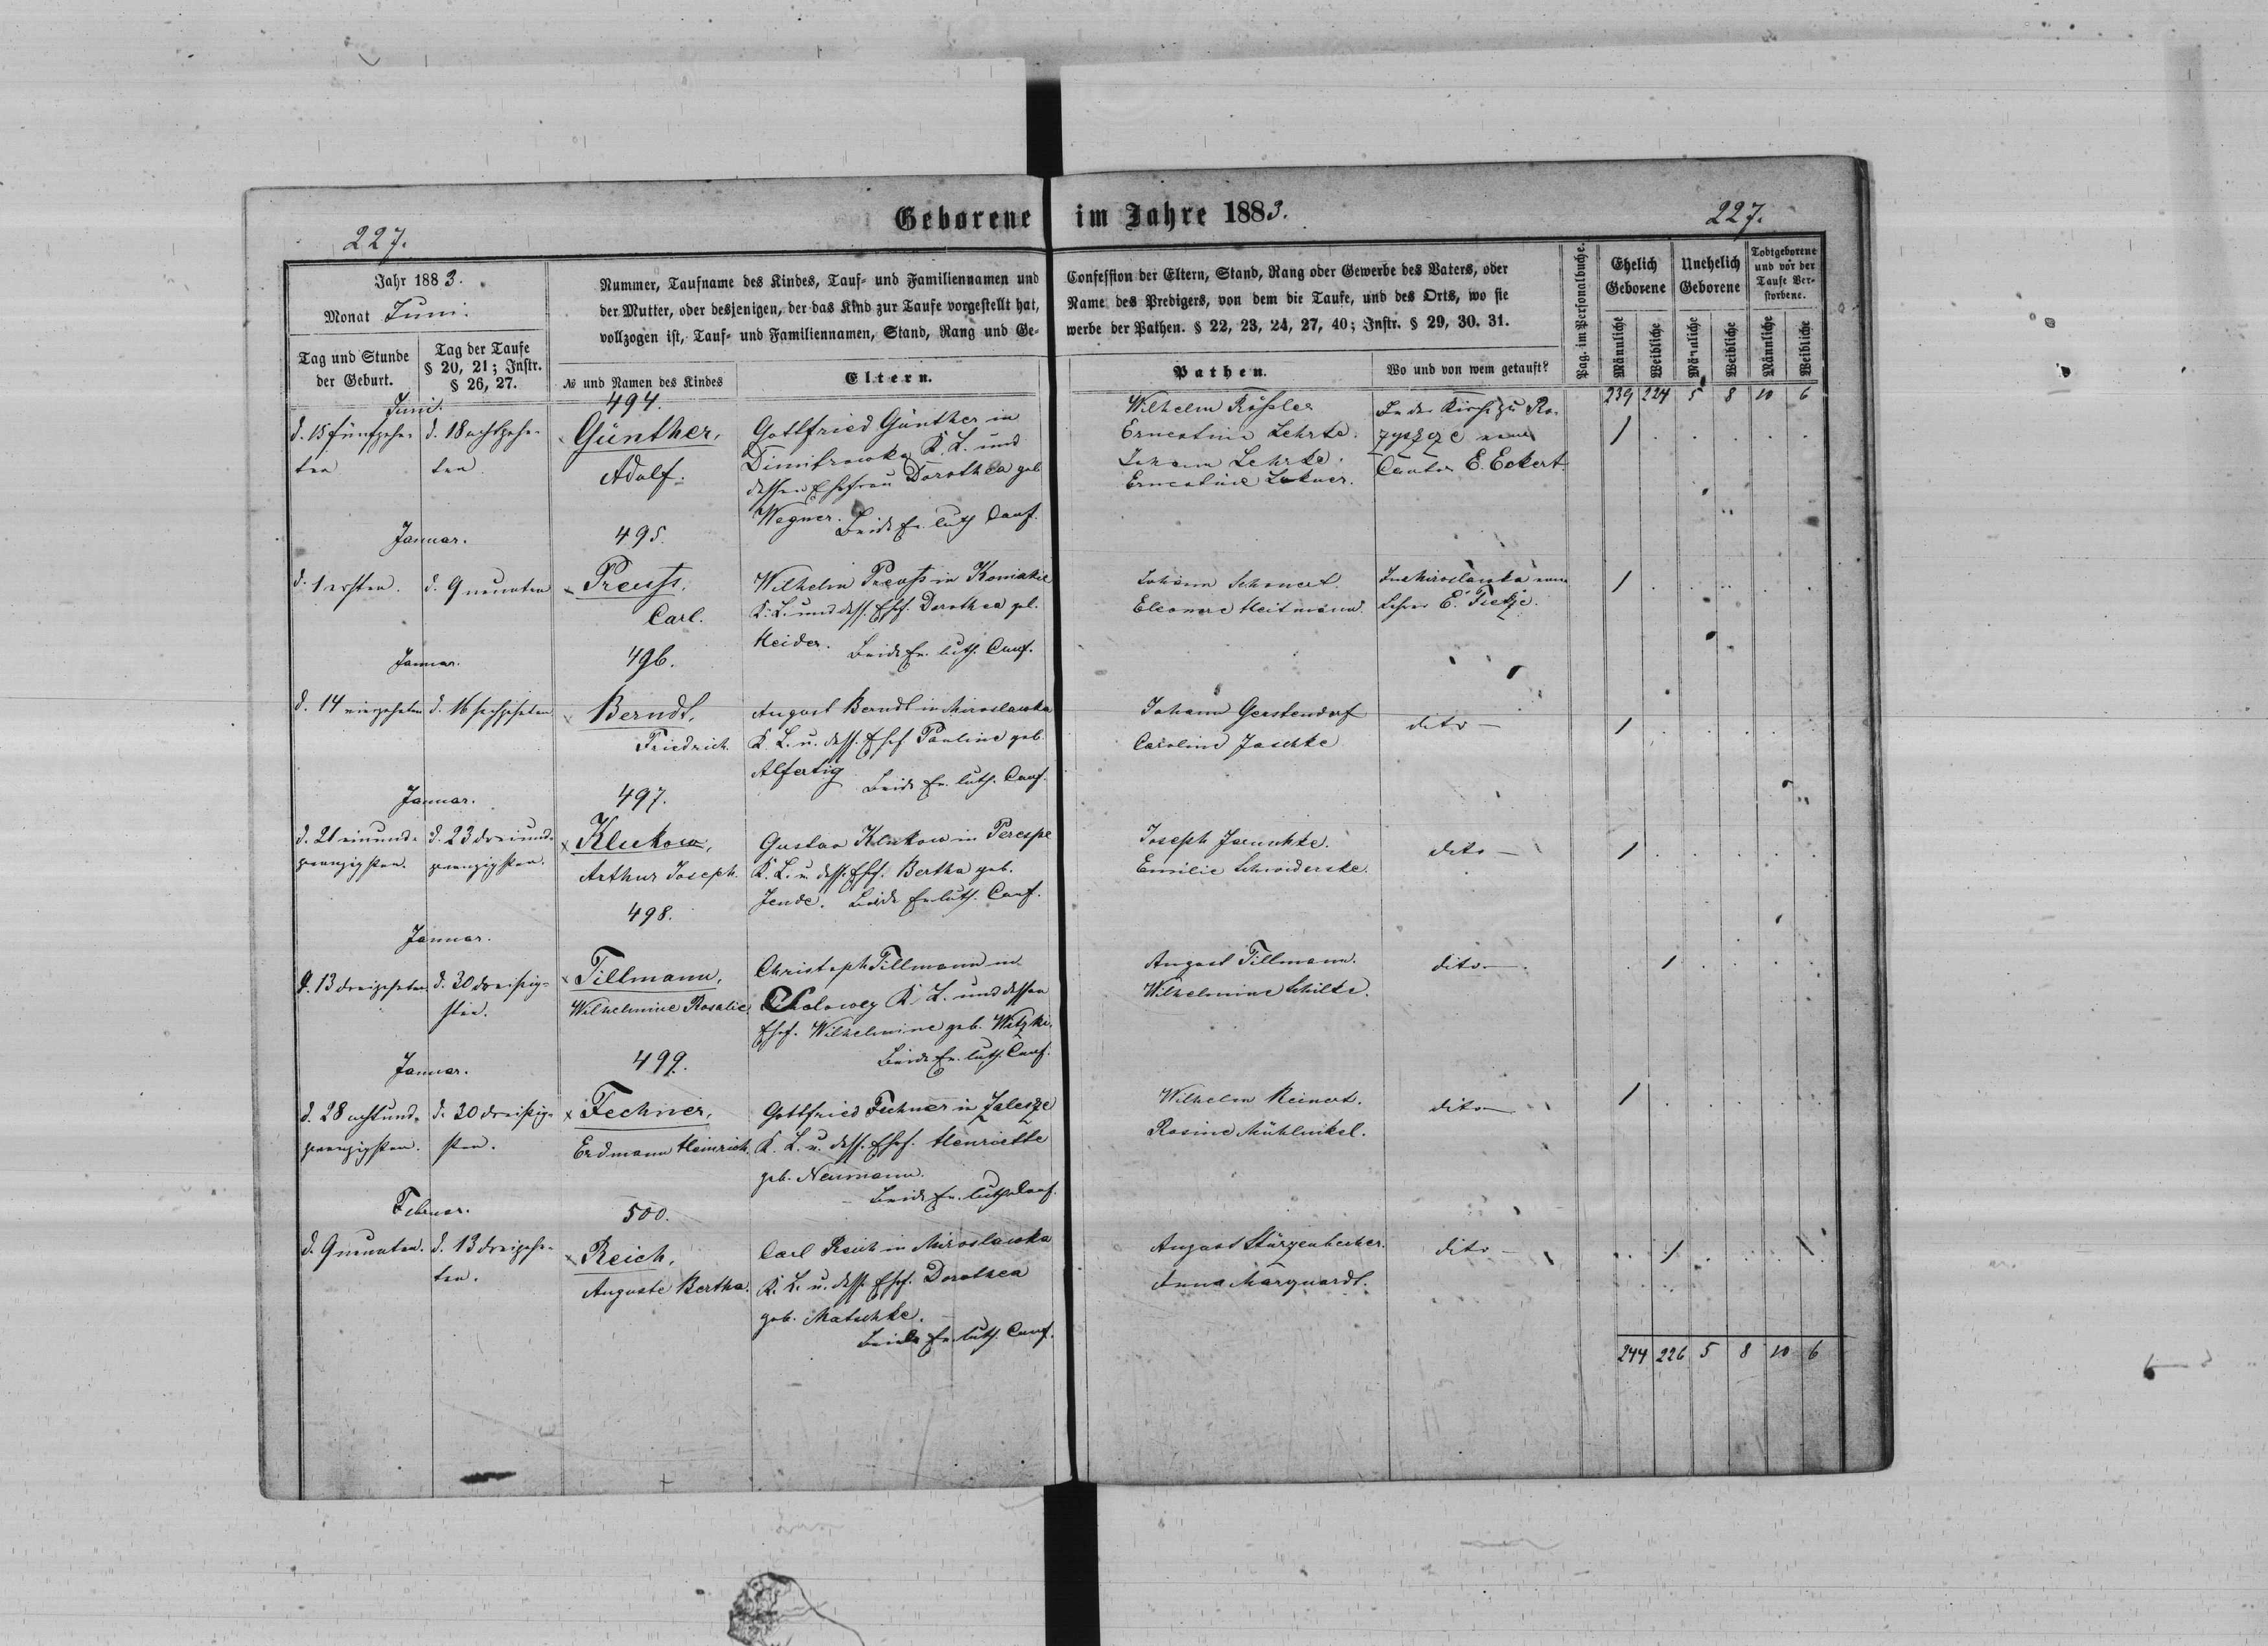 Geborene im Jahre 1883.
227.
227.
Jahr 1883.
Monat Juni.
Tag und Stunde der Geburt.
Tag der Taufe § 20, 21; Instr. § 26, 27.
Nummer, Taufname des Kindes, Tauf- und Familiennamen und
der Mutter, oder desjenigen, der das Kind zur Taufe vorgestellt hat,
vollzogen ist, Tauf- und Familiennamen, Stand, Rang und Ge-
№ und Namen des Kindes
Eltern.
Confession der Eltern, Stand, Rang oder Gewerbe des Vaters, oder
Name des Predigers, von dem die Taufe, und des Orts, wo sie
werbe der Pathen. § 22, 23, 24, 27, 40; Instr. § 29, 30, 31.
Pathen.
Wo und von wem getauft?
Pag. im Personalbuche.
Ehelich Geborene
Unehelich Geborene
Todtgeborene und vor der Taufe Verstorbene.
Männliche Weibliche Männliche Weibliche Männliche Weibliche
239 224 5 8 10 6
Juni.
494.
d. 15 fünfzehn-
ten
d. 18 achtzehn-
ten.
Günther,
Adolf.
Gottfried Günther in
Dimitrowka K. L. und
dessen Ehefrau Dorothea geb
Wegner. Beide Ev. luth Conf.
Wilhelm Rößler
Ernestine Lehrke.
Johann Lehrke.
Ernestine
In der Kirche zu Ro-
zyszcze vom
Cantor E. Eckert
1
Januar.
495.
d. 1 ersten.
d. 9 neunten
Preuss,
Carl.
Wilhelm Preuss in Koniakie
K. L. und dess. Ehef. Dorothea geb.
Heider. Beide Ev. luth. Conf.
Johann Schonert.
Eleonore Heitmann.
In Miroslawka vom
Lehrer E. Tietze.
1
Januar.
496.
d. 14 vierzehnten
d. 16 sechzehnten
Berndt,
Friedrich
August Berndt in Miroslawka
K. L. u. dess. Ehef. Pauline geb.
Alfertig Beide Ev. luth. Conf.
Johann Gerstendorf
Caroline Jaschke
dito
1
Januar.
497.
d. 21 einund-
zwanzigsten.
d. 23 dreiund-
zwanzigsten.
Klukow,
Arthur Joseph.
Gustav Klukow in Perespe
K. L. u. dess. Ehef. Bertha geb.
Jende. Beide Ev. luth. Conf.
Joseph
Emilie Schwiderske.
dito
1
Januar.
498.
d. 13 dreizehnten
d. 30 dreißig-
sten.
Tillmann,
Wilhelmine Rosalie.
Christoph Tillmann in
K. L. und dessen
Ehef. Wilhelmine geb. Witzke.
Beide Ev. luth. Conf.
August Tillmann.
Wilhelmine Schilke.
dito
1
Januar.
499.
d. 28 achtund-
zwanzigsten.
d. 30 dreißig-
sten.
Fechner,
Erdmann Heinrich.
Gottfried Fechner in Zalesze
K. L. u. dess. Ehef. Henriette
geb. Neumann.
Beide Ev. luth. Conf.
Wilhelm Reinert.
Rosine Mühlnikel.
dito
1
Februar.
500.
d. 9 neunten.
d. 13 dreizehn-
ten.
Reich,
Auguste Bertha.
Carl Reich in Miroslawka
K. L. u. dess. Ehef. Dorothea
geb. Matschke.
Beide Ev. luth. Conf.
August Stürzenbecher.
Anna Marquardt.
dito
1
244 226 5 8 10 6